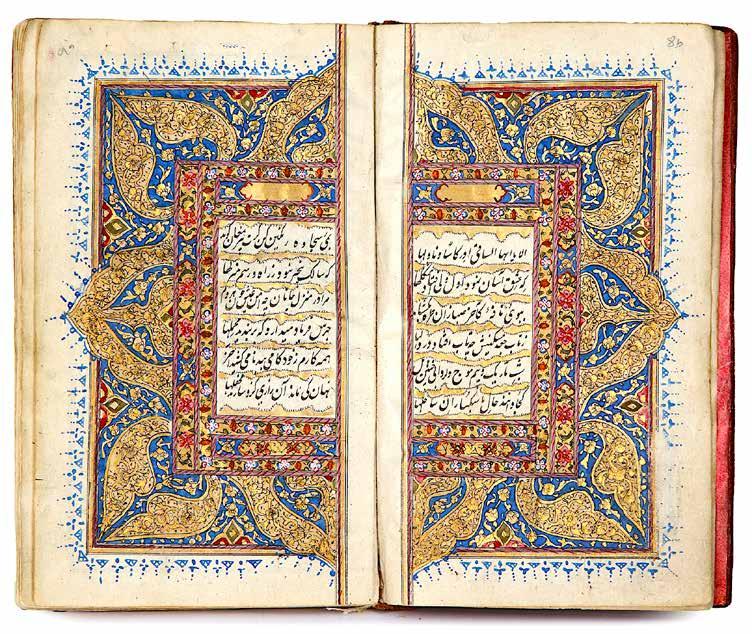 8b
الا یا ایها الساقی ادر کاسا و ناولها
که عشق آسان نمود اول ولی افتاد مشکلها
ببوی نافه کاخر صبا زان طره
ز تاب جعد مشکینش چه افتاد در
شب تاریک و بیم موج و گردابی چنین هایل
کجا دانند حال ما سبکساران ساحلها
بمی سجاده رنگین کن گرت پیر مغان گوید
که سالک بیخبر نبود ز راه و رسم منزلها
مرا در منزل جانان چه امن عیش چون هردم
جرس فریاد میدارد که بربندید محملها
همه کارم ز خودکامی به بدنامی کشید آخر
نهان کی ماند آن رازی کزو سازند محفلها